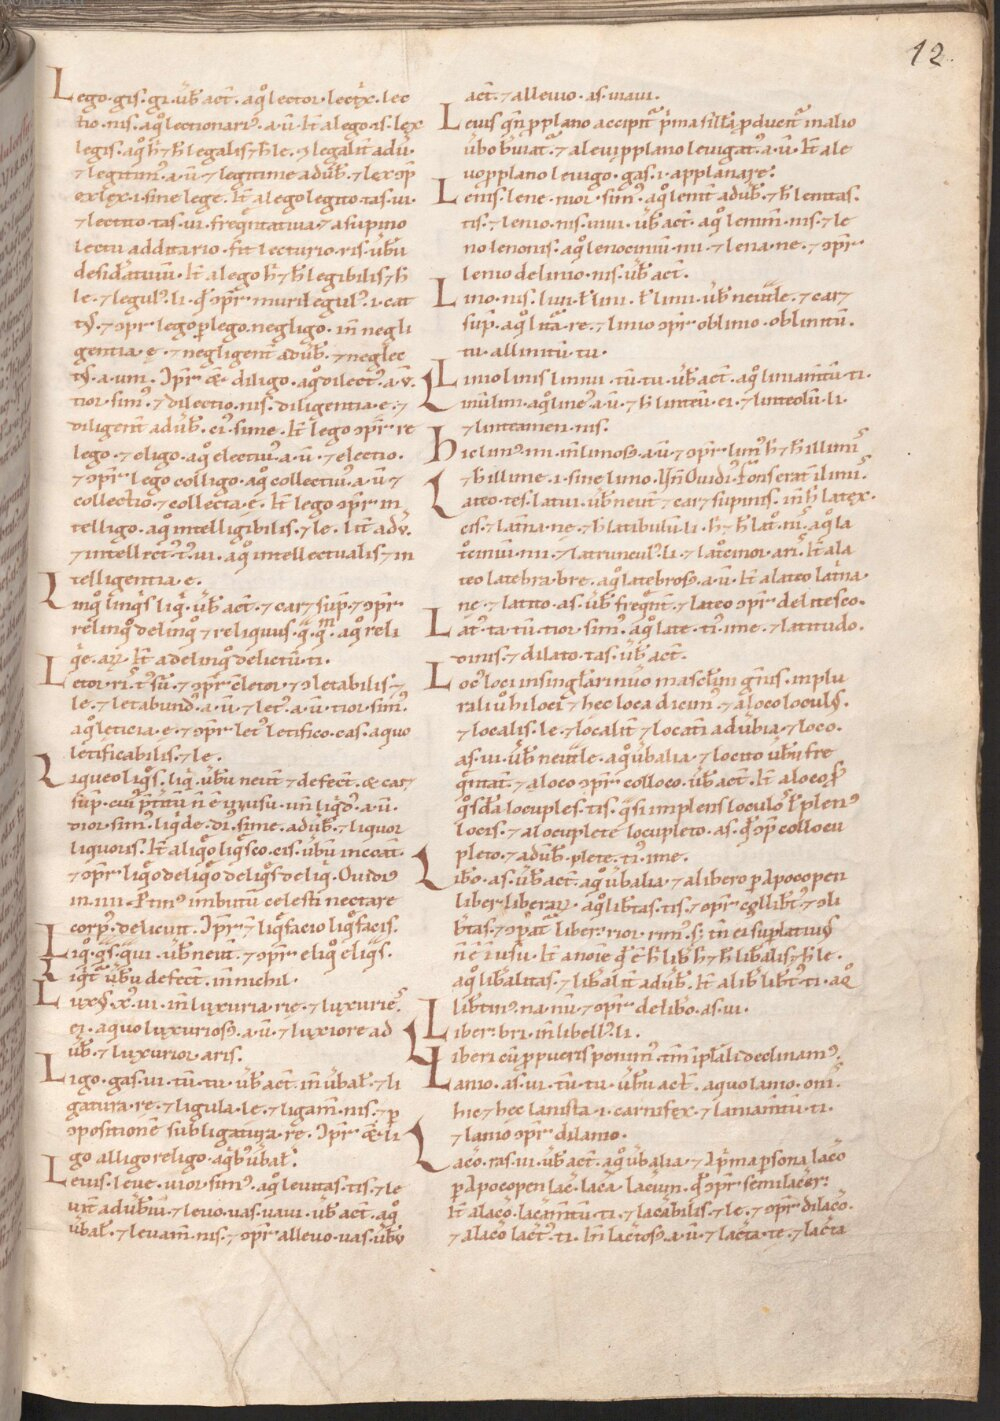 12
Lego·gis·gi·ūb act̄·aq̊ lector·lectͥx·lec
tio·nis·aq̊ lectionari᷒·a·ū·It̄ alego·is·lex
legis·aq̊ h̄ ⁊ h̄ legalis ⁊ h̄ le·ꝯlegalit̄ adū·
⁊ legitim᷒·a·ū·⁊ legitime adūb·⁊ lex ꝯp̄
exlex·i·sine lege·It̄ alego legito·tas·ui·
⁊ lectito·tas·ui·freq̄ntatiua·⁊ asupino
lectu additario·fit lecturio·ris·ūbū
desid̄atiuū·It̄ alego h̄ ⁊ h̄ legibilis ⁊ h̄
le·⁊ legul᷒·li·q̄ ꝯpr̄ muril̄egul᷒·i·cat
t᷒·⁊ ꝯpr̄ lego ꝑlego·negligo·in̄ negli
gentia·ę·⁊ negligent̄ adūb·⁊ neglec
t᷒·a·um·Ꝯpr̄ diligo·aq̊ dilect᷒·a·ū·
tior·sim᷒·⁊ dilectio·nis·diligentia·e·⁊
diligent̄ adūb·ei᷒·sime·It̄ lego ꝯpr̄ re
lego·⁊ eligo·aq̊ electiu᷒·a·ū·⁊ electio·
⁊ ꝯpr̄ lego colligo·aq̊ collectiu᷒·a·ū·⁊
collectio·⁊ collecta·ę·It̄ lego ꝯpr̄ in
telligo·aq̊ intelligibilis·⁊ le·lit̄ adū·
⁊ intellect᷒·t᷒·ui·aq̊ intellectualis ⁊ in
telligentia·e·
Linq̊ linq̄s liq̄·ūb act̄·⁊ car⁊ sup̄·⁊ ꝯpr̄
relinq̊ delinq̊ ⁊ reliquus·q̄·q̄·aq̊ reli
q̄e·It̄ adelinq̊ delictū·ti·
Letor·ri᷒·t᷒ sū·⁊ ꝯpr̄ ꝯletor·⁊ ꝯletabilis·⁊
le·⁊ letabund᷒·a·ū·⁊ let᷒·a·ū·tior·sim᷒·
aq̊ leticia·e·⁊ ꝯpr̄ let᷒ letifico·cas·aquo
letificabilis·⁊ le·
Liqueo liq̄s·liq̄·ūbū neut̄·⁊ defect̄·& car⁊
sup̄·cui᷒ p̄titū n̄ ē inusu·un̄ liq̄d᷒·a·ū·
dior·sim᷒·liq̄de·di᷒·sime·adūb·⁊ liquor
liquoris·It̄ aliq̊ liq̄sco·cis·ūbū incoat̄·
⁊ ꝯpr̄ liq̊ deliq̊ deliq̄s deliq̄·Ouidi᷒
in·iiii·Etin᷒ imbutū celesti nectare
corp᷒·delicuit·Ꝯpr̄ ⁊ liq̊facio liq̊facis·
Liq̊·q̄s·qui·ūb neut̄·⁊ ꝯpr̄ eliq̊ eliq̄s·
Liq̄t ūbū defect̄·in nichil·
Lux᷒·x᷒·ui·in̄ luxuria·rię·⁊ luxurie᷒·
ei·aquo luxurios᷒·a·ū·⁊ luxiore ad
ūb·⁊ luxurior·aris·
Ligo·gas·ui·tū·tu·ūb act̄·in̄ ūbał·⁊ li
gatura·re·⁊ ligula·le·⁊ ligam̄·nis·⁊ ꝑ
ꝯpositionē subligatura·re·Ꝯpr̄ li
go alligo religo·aq̄b᷒ ūbał·
Leuis·leue·uior·sim᷒·aq̊ leuitas·tis·⁊ le
uit̄ adūbiū·⁊ leuo·uas·uaui·ūb act̄·aq̊
ūbał·⁊ leuam̄·nis·⁊ ꝯpr̄ alleuo·uas·ūbū
act̄·⁊ alleuio·as·uiaui·
Leuis q̄n̄ ꝓ plano accipit̄ p̄ma sillā ꝓducit̄ in alio
ūbo b̄uiat̄·⁊ aleui ꝓ plano leuigat᷒·a·ū·It̄ ale
uo ꝓ plano leuigo·gas·i·applanare·
Lenis·lene·nior·sim᷒·aq̊ lenit̄ adūb·⁊ h̄ lenitas·
tis·⁊ lenio·nis·niui·ūb act̄·aq̊ lenim̄·nis·⁊ le
no lenonis·aq̊ lenociniū·nii·⁊ lena·ne·⁊ ꝯpr̄
lenio delinio·nis·ūb act̄·
Lino·nis·liui·ł lini·ł liniui·ūb neutle·⁊ car⁊
sup̄·aq̊ lit̄a·re·⁊ linio ꝯpr̄ oblinio·oblinitū·
tu·allinitū·tu·
Linio linis liniui·tū·tu·ūb act̄·aq̊ liniam̄tū·ti·
Linū lini·aq̊ line᷒·a·ū·⁊ h̄ linteū·ei·⁊ linteolū·li·
⁊ linteamen·nis·
Hic lim᷒·mi·in̄ limos᷒·a·ū·⁊ ꝯpr̄ lim᷒ h̄ ⁊ h̄ illimis
⁊ h̄ illime·i·sine limo·Un̄ Ouidi᷒ fons erat illimis
Lateo·tes·latui·ūb neut̄·⁊ car⁊ supinis·in̄ h̄ latex·
cis·⁊ lat̄na·ne·⁊ h̄ latibulū·li·h̄ ⁊ h̄ lat̊·nis·aq̊ la
t̊ciniū·nii·⁊ latruncul᷒·li·⁊ lat̊cinor·ari᷒·It̄ ala
teo latebra·bre·aq̊ latebros᷒·a·ū·It̄ alateo lat̄na·
ne·⁊ latito·as·ūb freq̄nt̄·⁊ lateo ꝯpr̄ delitesco·
Lat᷒·ta·tū·tior·sim᷒·aq̊ late·ti᷒·ime·⁊ latitudo·
dinis·⁊ dilato·tas·ūb act̄·
Loc᷒ loci insingłari nūo masclini gn̄is·inplu
rali ūo hi loci ⁊ hec loca dicim᷒·⁊ aloco locul᷒·
⁊ localis·le·⁊ localit̄ ⁊ locati adūbia·⁊ loco·
as·ui·ūb neutle·aq̊ ūbalia·⁊ locito ūbū fre
q̄ntat̄·⁊ aloco ꝯpr̄ colloco·ūb act̄·It̄ aloco
q̊s dā locuples·tis·q̄si implens loculos ł plen᷒
locis·⁊ alocuplete locupleto·as·q̄ ꝯpr̄ collocu
pleto·⁊ adūb·plete·ti᷒·ime·
Libo·as·ūb act̄·aq̊ ūbalia·⁊ alibero ꝑ apocopen
liber·aq̊ lib̄tas·tis·⁊ ꝯpr̄ collib̄t᷒·⁊ ꝯli
b̄tas·⁊ ꝯpat̄ liber·rior·rim᷒·s; tn̄ ei suplatiu᷒
n̄ ē inusu·It̄ anoīe q̄ ē h̄ lib h̄ ⁊ h̄ lib̄alis ⁊ h̄ le·
aq̊ lib̄alitas·⁊ lib̄alit̄ adūb·It̄ alib̄ lib̄t᷒·ti·aq̊
lib̄tin᷒·na·nū·⁊ ꝯpr̄ delibo·as·ui·
Liber·bri·in̄ libell᷒·li·
Liberi cū ꝓ pueris ponim᷒·tm̄ in plāli declinam᷒·
Lanio·as·ui·tū·tu·ūbū act̄·aquo lanio·onis·
hic ⁊ hec lanista·i·carnifex·⁊ laniam̄tū·ti·
⁊ lanio ꝯpr̄ dilanio·
Lac̄o·ras·ui·ūb act̄·aq̊ ūbalia·⁊ ap̄ma ꝑsona lac̄o
ꝑ apocopen lac̄·lac̄a·lac̄um·q̄ ꝯpr̄ semilacer·
It̄ alac̄o·lac̄am̄tū·ti·⁊ lac̄abilis·⁊ le·⁊ ꝯpr̄ dilac̄o·
⁊ alac̄o lac̄t᷒·ti·In̄ lac̄tos᷒·a·ū·⁊ lac̄ta·te·⁊ lac̄ta